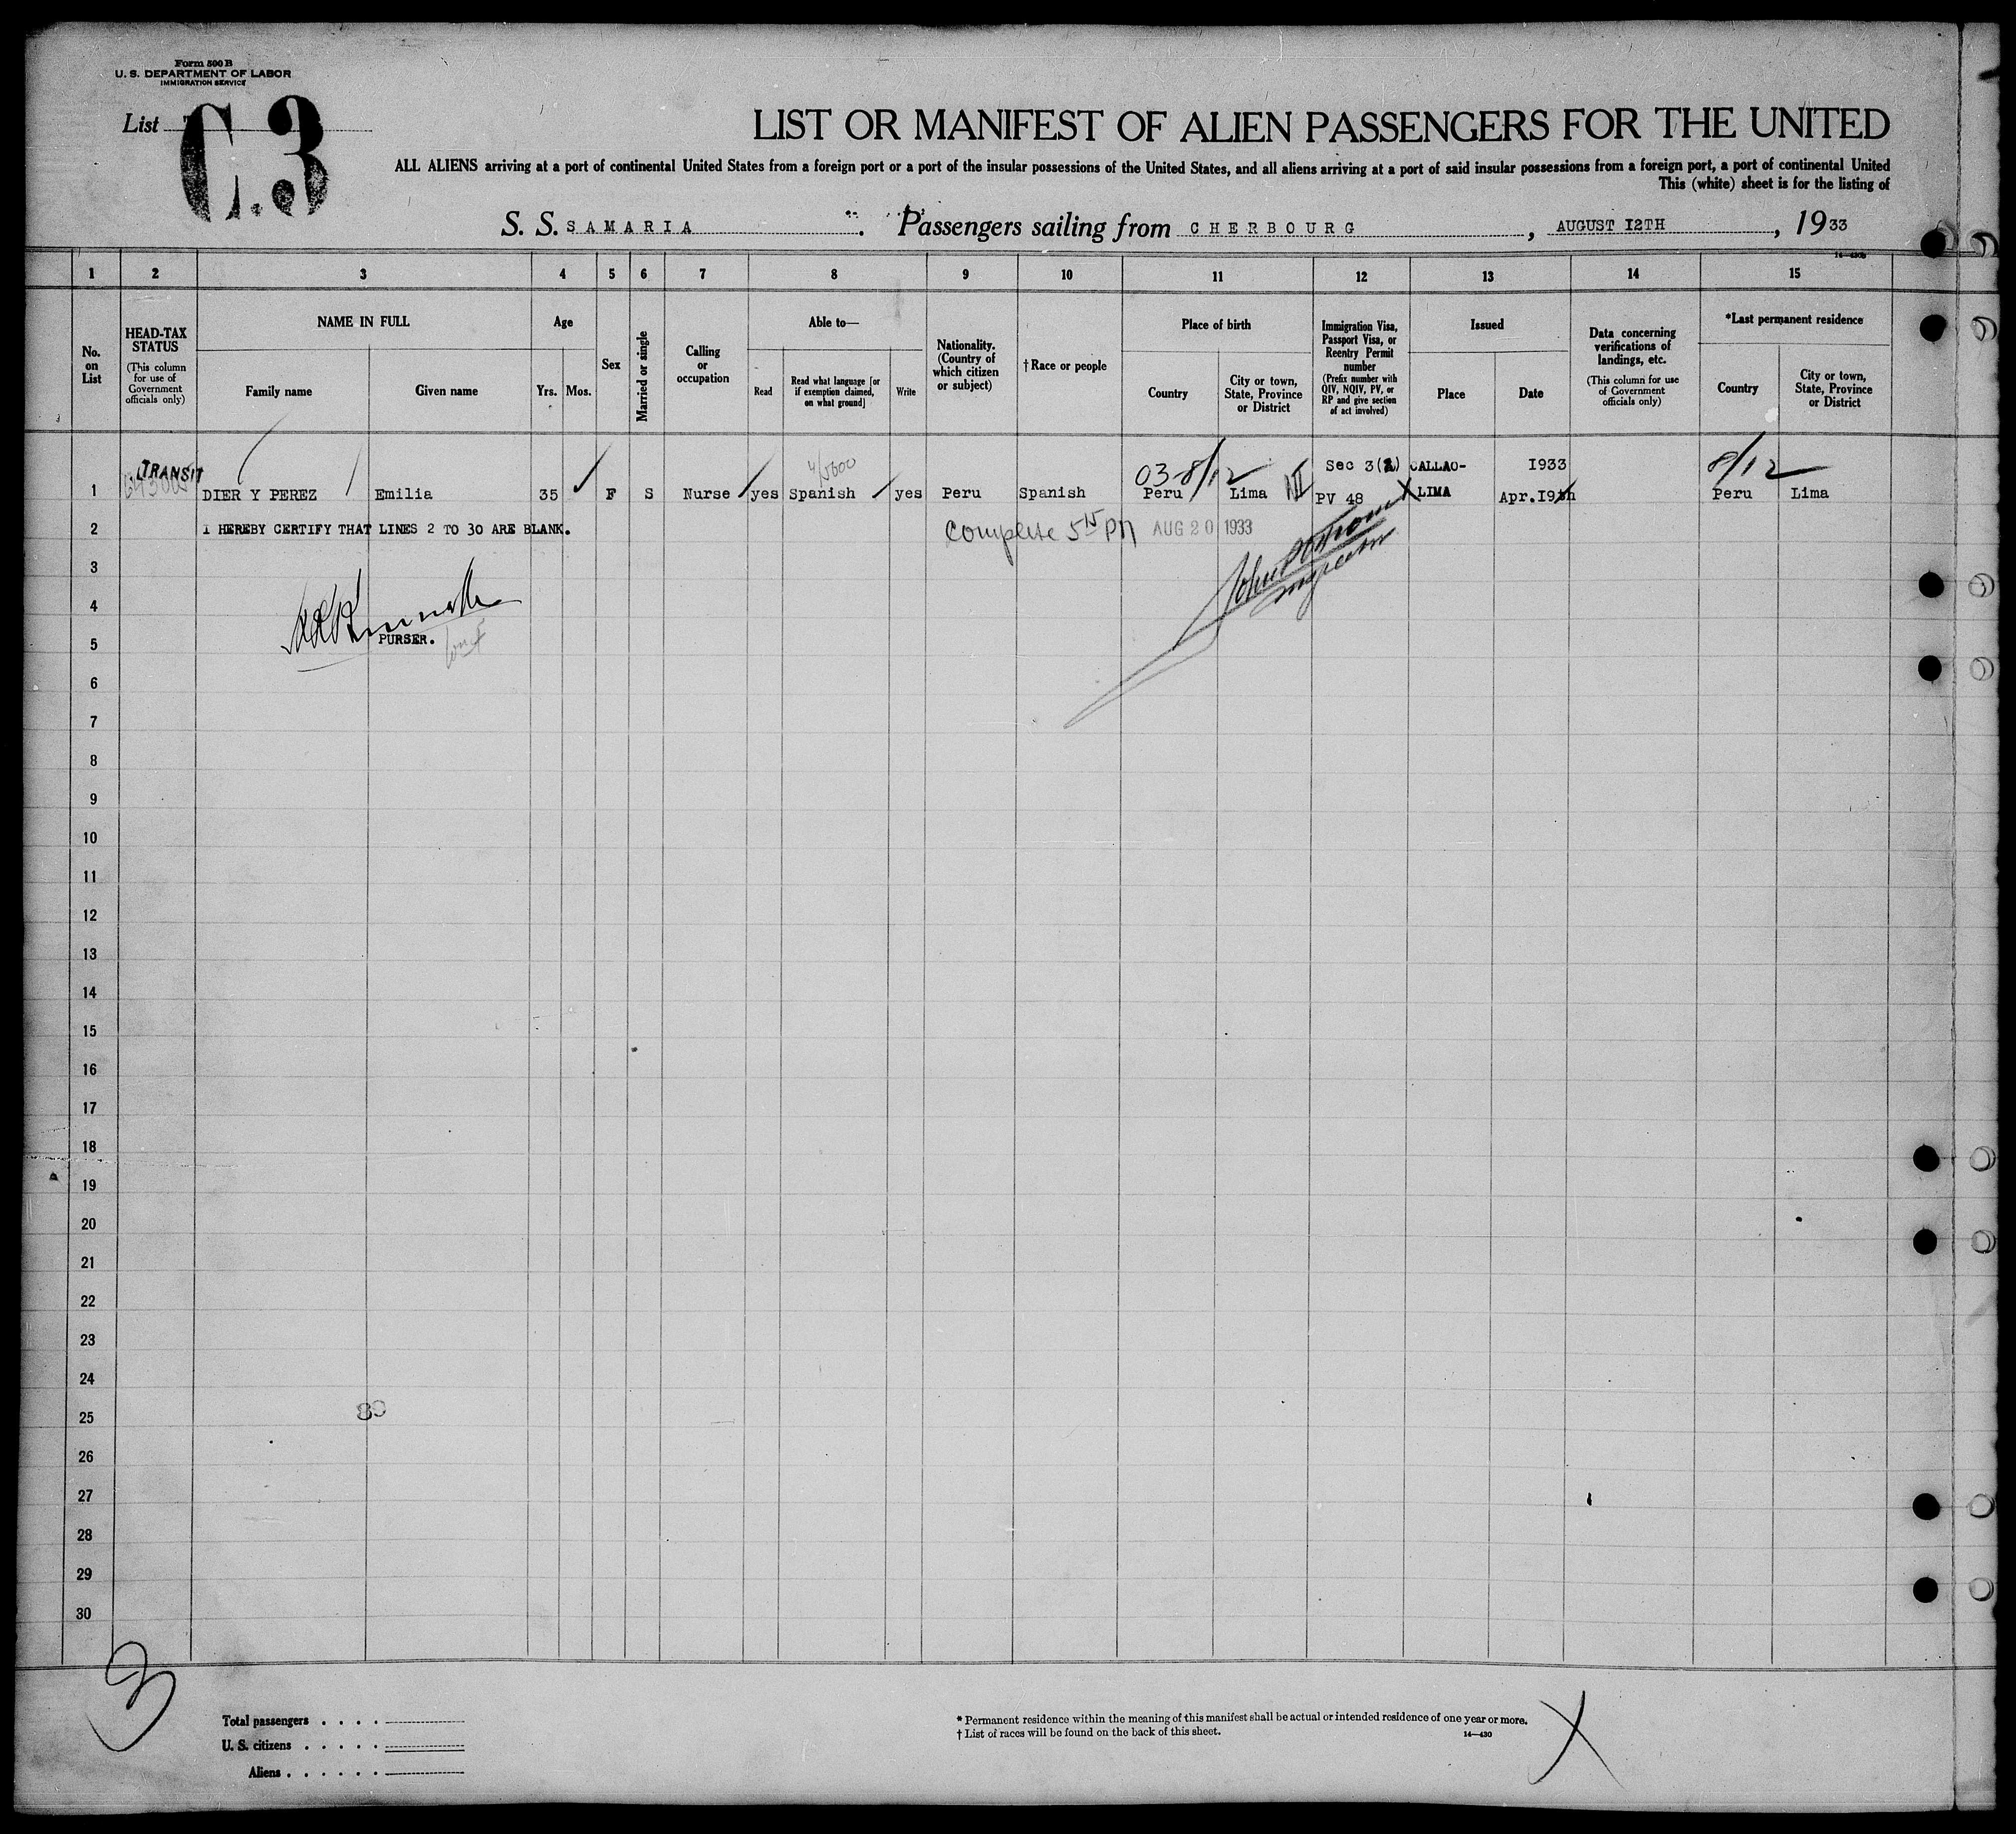 Form 500 B
U. S. DEPARTMENT OF LABOR
IMMIGRATION SERVICE
List
C.3
LIST OR MANIFEST OF ALIEN PASSENGERS FOR THE UNITED
ALL ALIENS arriving at a port of continental United States from a foreign port or a port of the insular possessions of the United States, and all aliens arriving at a port of said insular possessions from a foreign port, a port of continental United
This (white) sheet is for the listing of
S. S. SAMARIA Passengers sailing from CHERBOURG, AUGUST 12TH, 1933
14—430b
1 2 3 4 5 6 7 8 9 10 11 12 13 14 15
No. on List
HEAD-TAX STATUS
(This column for use of Government officials only)
NAME IN FULL
Family name
Given name
Age
Yrs. Mos.
Sex
Married or single
Calling or occupation
Able to—
Read
Read what language [or if exemption claimed, on what ground]
Write
Nationality. (Country of which citizen or subject)
†Race or people
Place of birth
Country
City or town, State, Province or District
Immigration Visa, Passport Visa, or Reentry Permit number
(Prefix number with QIV, NQIV, PV, or RP and give section of act involved)
Issued
Place
Date
Data concerning verifications of landings, etc.
(This column for use of Government officials only)
*Last permanent residence
Country
City or town, State, Province or District
TRANSIT 03-8/12 Sec 3(2) CALLAO- 1933 8/12
1 DIER Y PEREZ Emilia 35 F S Nurse yes Spanish yes Peru Spanish Peru Lima PV 48 LIMA Apr.19th Peru Lima
2 I HEREBY CERTIFY THAT LINES 2 TO 30 ARE BLANK. Complete 5 15 PM AUG 20 1933
3
4
5 PURSER.
Inspector
6
7
8
9
10
11
12
13
14
15
16
17
18
19
20
21
22
23
24
25
26
27
28
29
30
3
Total passengers . . . .
U. S. citizens . . . . .
Aliens . . . . . .
* Permanent residence within the meaning of this manifest shall be actual or intended residence of one year or more.
† List of races will be found on the back of this sheet.
14—430
X